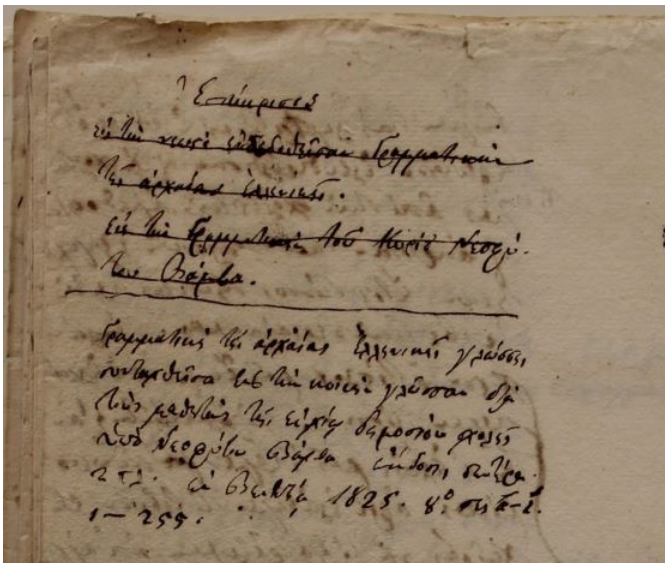 Ἐπίκρισις
εἰς τὴν νεωστὶ ἐκδοθεῖσαν Γραμματικὴν
τῆς ἀρχαίας ἑλληνικῆς.
εἰς τὴν Γραμματικὴν τοῦ Κυρίου Νεοφύ-
του Βάμβα.
Γραμματικὴ τῆς ἀρχαίας Ἑλληνικῆς γλώσσης
συνταχθεῖσα εἰς τὴν κοινὴν γλῶσσαν διὰ
τοὺς μαθητὰς τῆς ἐν Χίῳ δημοσίου σχολῆς
ὑπὸ Νεοφύτου Βάμβα ἔκδοσις δευτέρα
ἐν Βενετίᾳ 1825. 8º. σελ.
1 — 255.